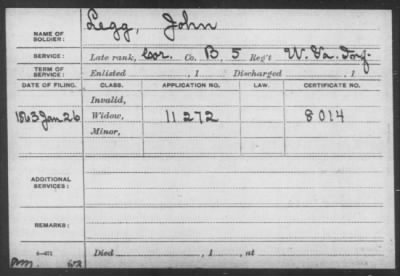 NAME OF SOLDIER: Legg, John
SERVICE: Late rank, Cor. Co. B, 5 Reg't W. Va. Inf.
TERM OF SERVICE: Enlisted , 1 Discharged , 1
DATE OF FILING. CLASS. APPLICATION NO. LAW. CERTIFICATE NO.
Invalid,
1863 Jan 26 Widow, 11 272 8014
Minor,
ADDITIONAL SERVICES:
REMARKS:
Died , 1 , at